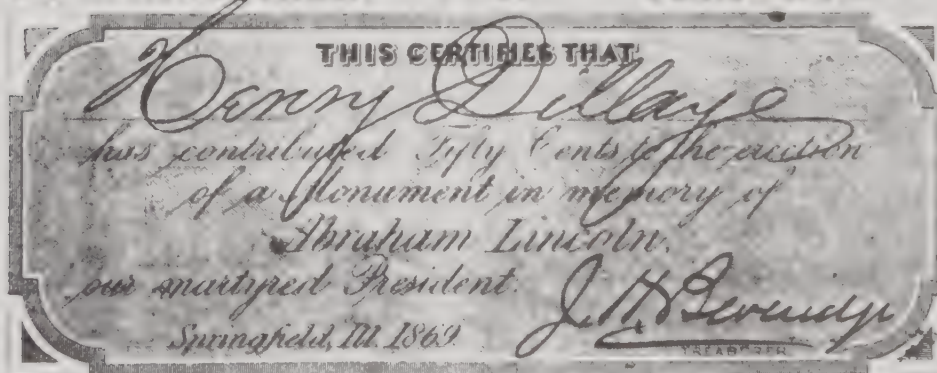 THIS CERTIFIES THAT
Henry Dillaye
has contributed Fifty Cents to the erection
of a Monument in memory of
Abraham Lincoln,
our martyred President.
Springfield, Ill. 1869
J. H. Beveridge
TREASURER